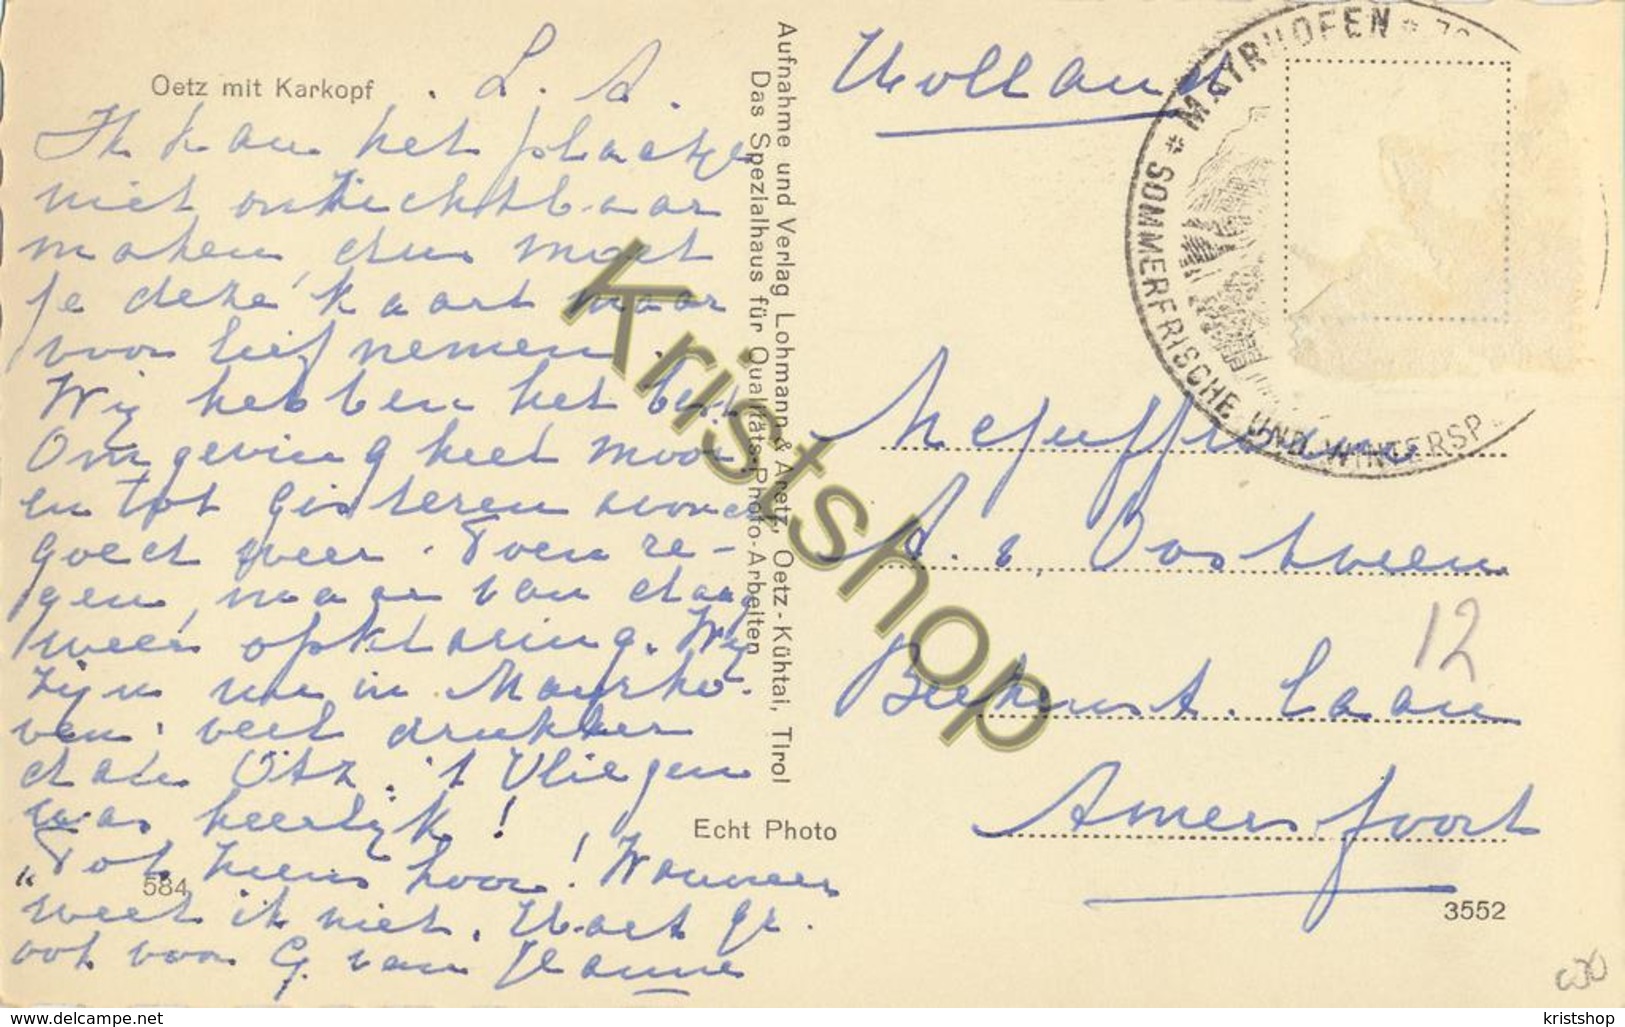 Oetz mit Karkopf
L. A.
Ik kan het plaatje
niet onzichtbaar
maken, dus moet
je deze kaart maar
voor lief nemen.
Wij hebben het best
Omgeving heel mooi
en tot gisteren
goed weer. Toen re-
gen, maar vandaag
weer opklaring. Wij
zijn nu in Mayrho-
ven: veel drukker
dan Ötz. 't Vliegen
was heerlijk!
Tot ziens hoor! Wanneer
weet ik niet. Hart. gr.
ook voor G. van Jeanne
584
Aufnahme und Verlag Lohmann & Aretz, Oetz-Kühtai, Tirol
Das Spezialhaus für Qualitäts-Photo-Arbeiten
Echt Photo
Holland
* MAYRHOFEN *
SOMMERFRISCHE UND WINTERSP
Mejuffrouw
A. v. Oostveen
12
Beekenst. Laan
Amersfoort
3552
Kristshop
www.delcampe.net
kristshop